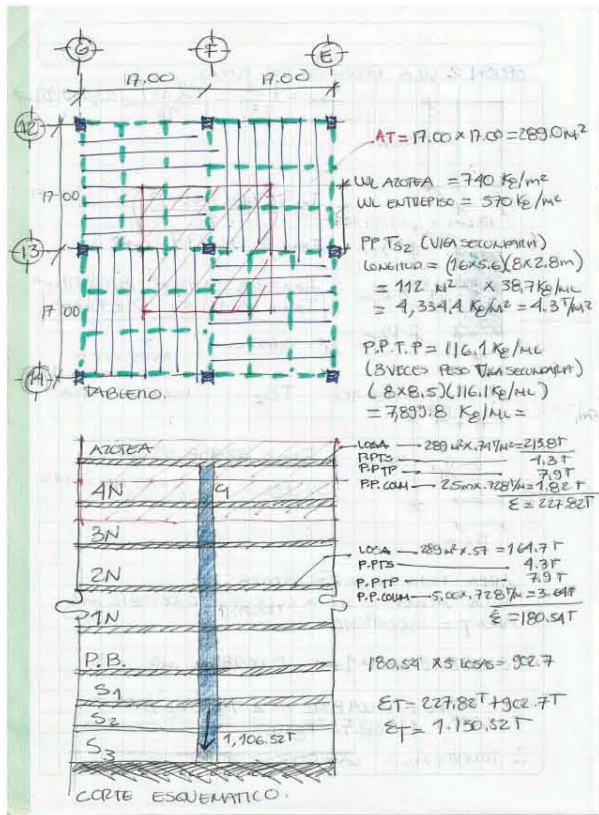 G F E
17.00 17.00
12
17.00
13
17.00
14
TABLERO.
AT = 17.00 x 17.00 = 289.0 M²
WL AZOTEA = 740 Kg/m²
WL ENTREPISO = 570 Kg/m²
PP.TS2 (VIGA SECUNDARIA)
LONGITUD = (16x5.6)(8x2.8m)
= 112 M² x 38,7 Kg/ML
= 4,334,4 Kg/M² = 4.3 T/M²
P.P.T.P = 116.1 Kg/ML
(3 VECES PESO VIGA SECUNDARIA)
(8x8.5)(116.1 Kg/ML)
= 7,899.8 Kg/ML =
AZOTEA
4N
3N
2N
1N
P.B.
S1
S2
S3
1,106.52T
CORTE ESQUEMATICO.
LOSA 289 M² x .74 T/M² = 213.8T
P.PTS 4.3T
P.PTP 7.9T
P.P. COLUM 2.5m x .728 T/M = 1.82T
Ɛ = 227.82T
LOSA 289 M² x .57 = 164.7T
P.PTS 4.3T
P.PTP 7.9T
P.P. COLUM 5.00 x .728 T/M = 3.64T
Ɛ = 180.54T
180.54 x 5 LOSAS = 902.7
ƐT = 227.82T + 902.7T
ƐT = 1.130.52T